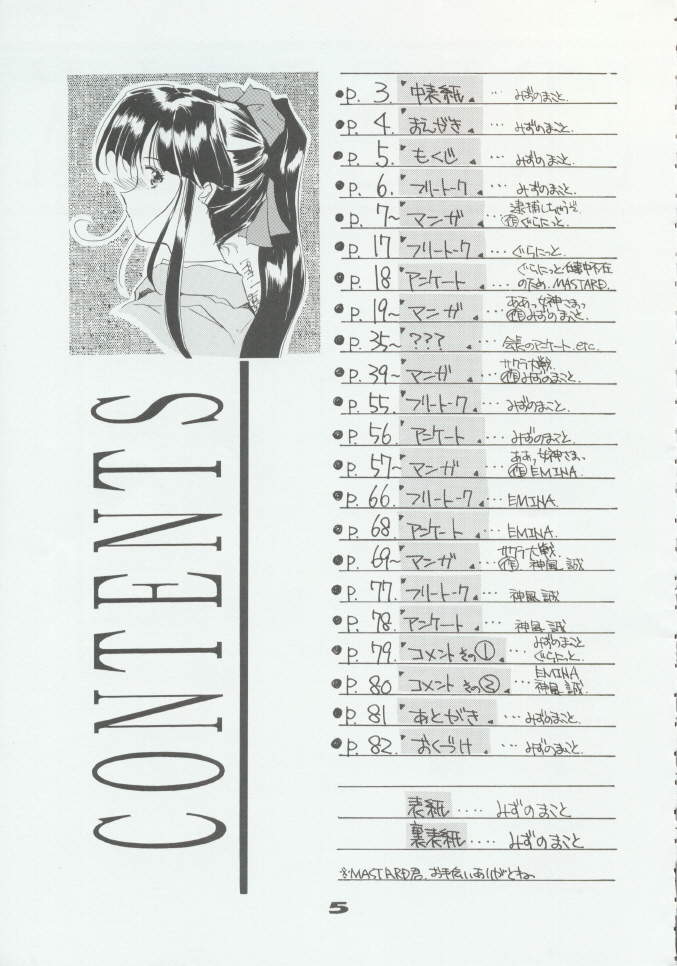 CONTENTS
p. 3. 中表紙 … みずのまこと.
p. 4. まえがき … みずのまこと.
p. 5. もくじ … みずのまこと.
p. 6. フリートーク … みずのまこと.
p. 7~ マンガ … 逮捕しちゃうぞ. 作ぐらにっと.
p. 17. フリートーク … ぐらにっと.
p. 18. アンケート … ぐらにっと仕事中不在のため. MASTARD.
p. 19~ マンガ … ああっ女神さまっ 作みずのまこと.
p. 35~ ??? … 会長のアンケート. etc.
p. 39~ マンガ … サクラ大戦. 作みずのまこと.
p. 55. フリートーク … みずのまこと.
p. 56. アンケート … みずのまこと.
p. 57~ マンガ … ああっ女神さまっ 作 EMINA.
p. 66. フリートーク … EMINA.
p. 68. アンケート … EMINA.
p. 69~ マンガ … サクラ大戦. 作. 神風 誠
p. 77. フリートーク … 神風 誠
p. 78. アンケート … 神風 誠
p. 79. コメント その① … みずのまこと ぐらにっと.
p. 80 コメント その② … EMINA. 神風 誠.
p. 81 あとがき … みずのまこと.
p. 82. おくづけ … みずのまこと.
表紙 …… みずのまこと
裏表紙 …… みずのまこと
※MASTARD君. お手伝いありがとね.
5